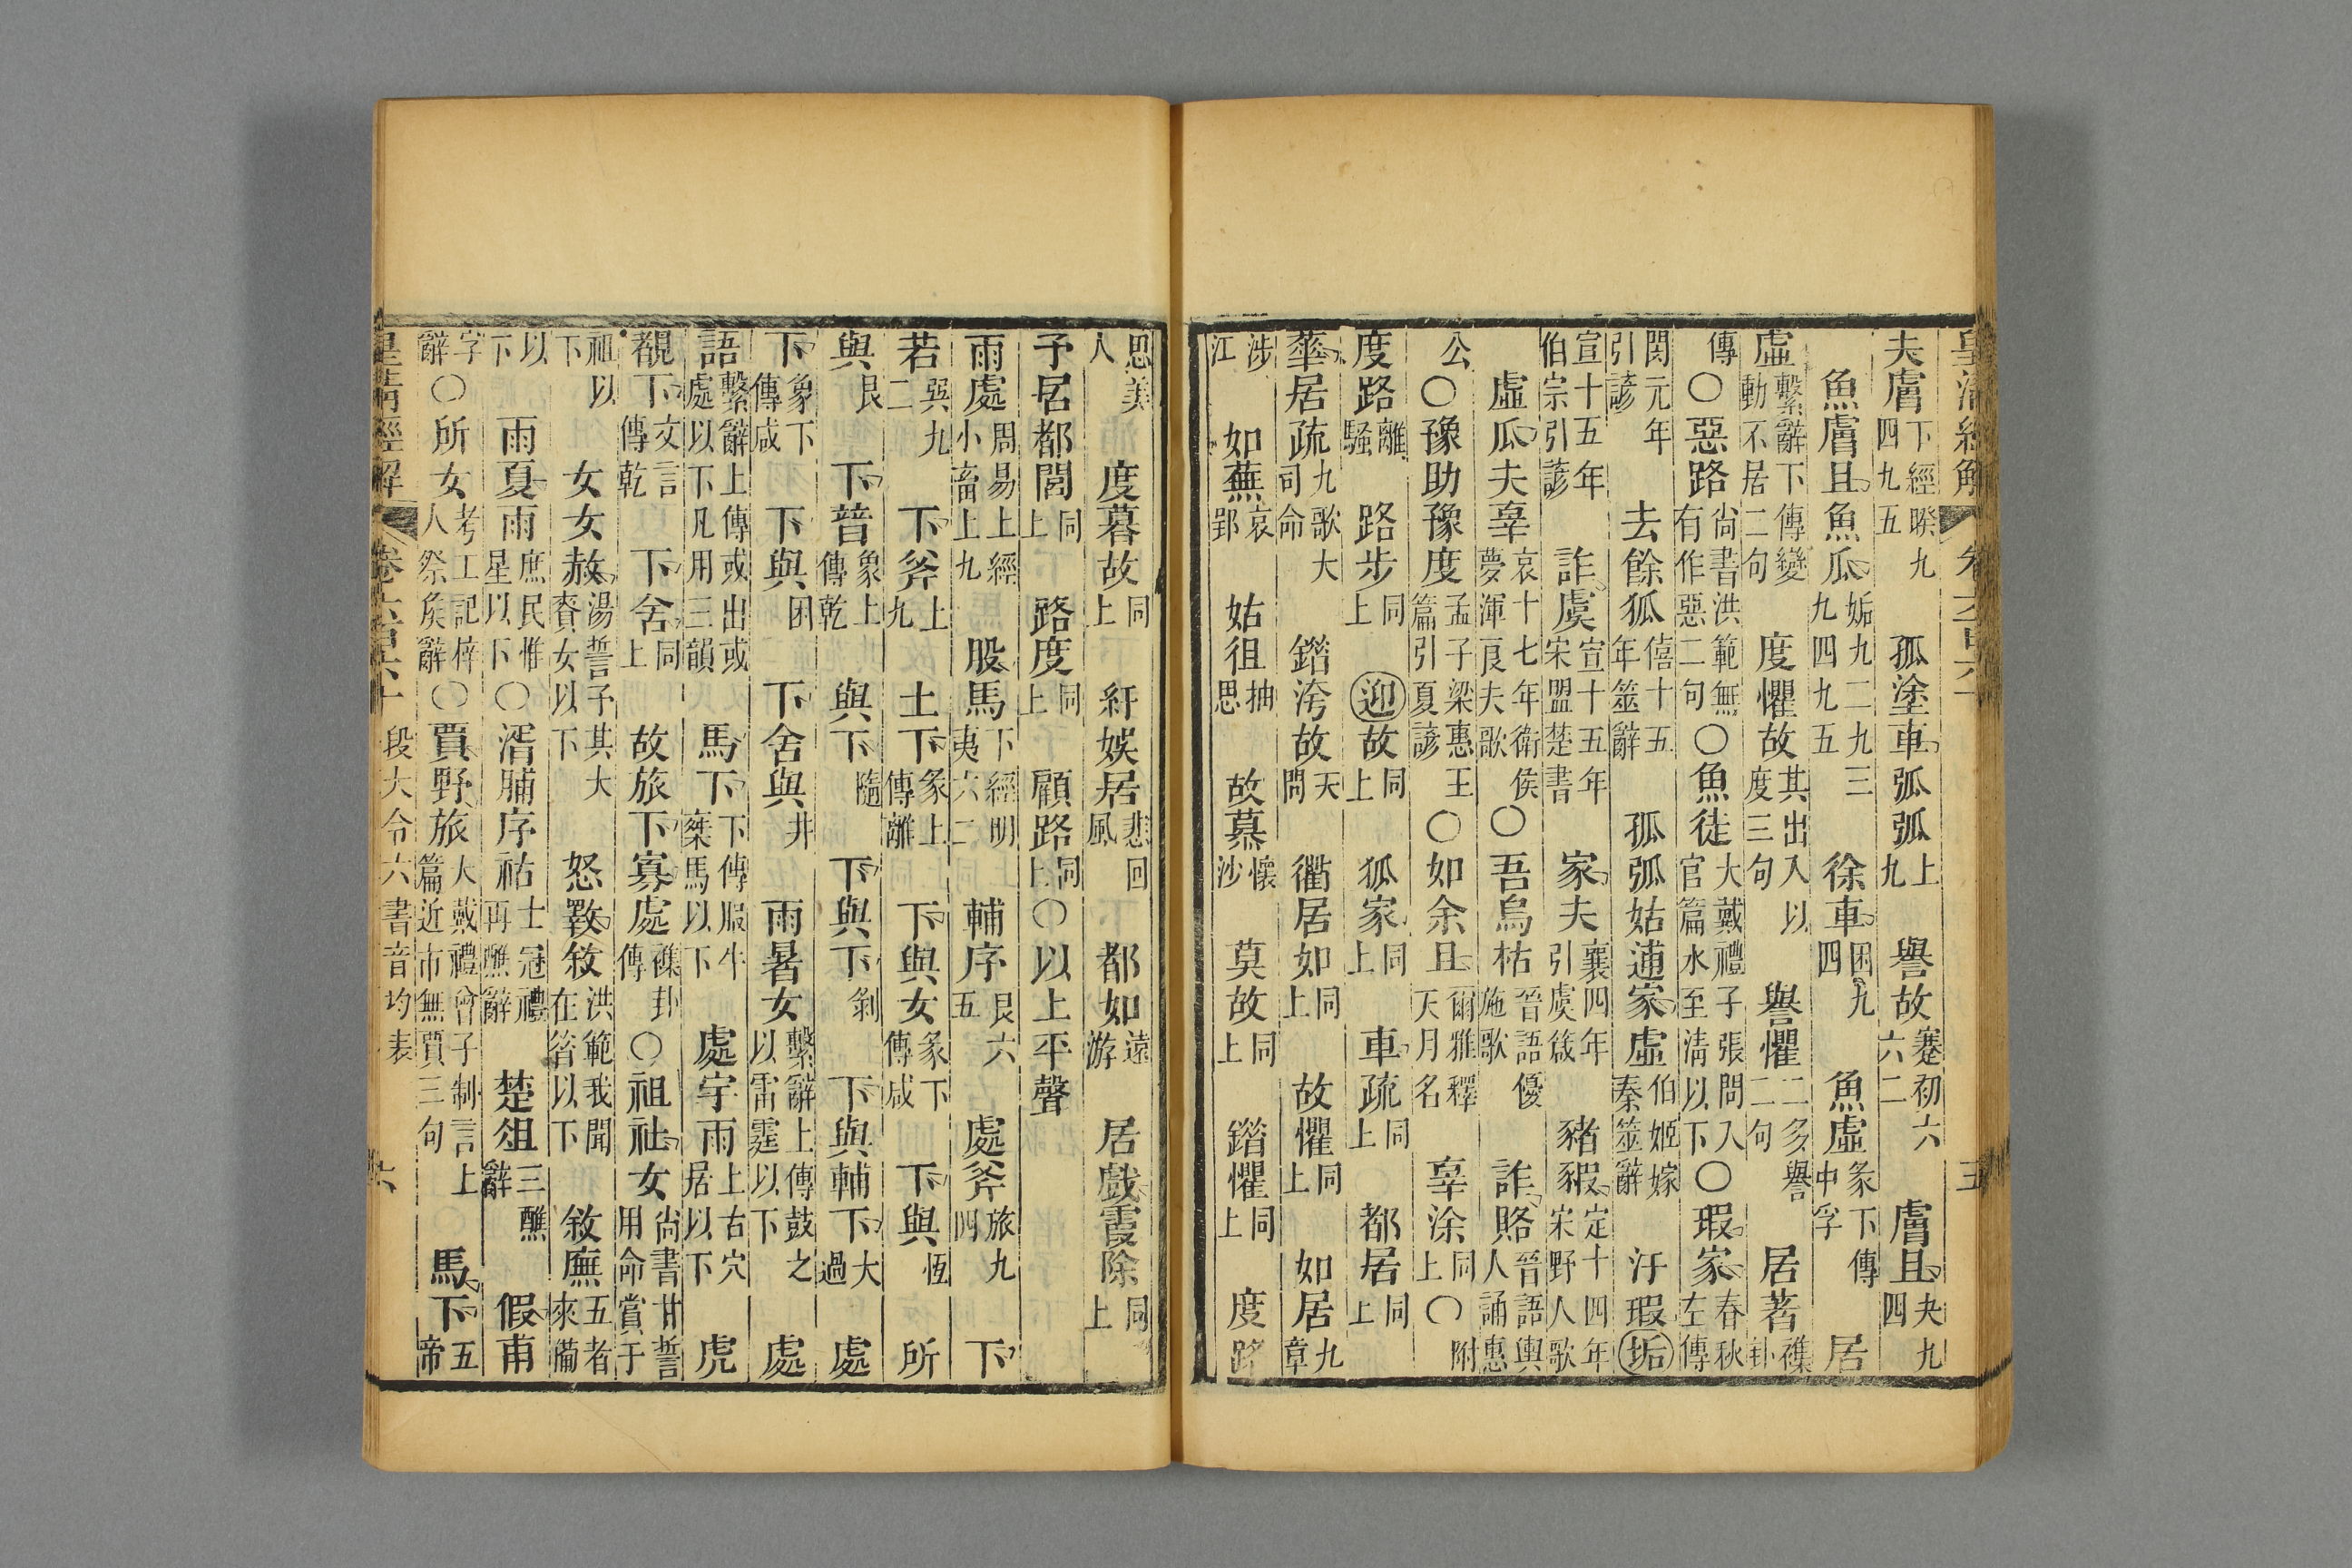 皇清經解 卷六百六十 五
夫膚下經睽九四九五 孤塗車弧弧上九 譽故蹇初六六二 膚且夬九四
魚膚且魚瓜姤九二九三九四九五 徐車困九四 魚虛彖下傳中孚 居
虛繫辭下傳變動不居二句 度懼故其出入以度三句 譽懼二多譽二句 居著襍卦
傳〇惡路尙書洪範無有作惡二句〇魚徒大戴禮子張問入官篇水至淸以下〇瑕家春秋左傳
閔元年引諺 去餘狐僖十五年筮辭 孤弧姑逋家虛伯姬嫁秦筮辭 汙瑕垢
宣十五年伯宗引諺 詐虞宣十五年宋盟楚書 家夫襄四年引虞箴 豬豭定十四年宋野人歌
虛瓜夫辜哀十七年衛侯夢渾良夫歌〇吾烏枯晉語優施歌 詐賂晉語輿人誦惠
公〇豫助豫度孟子梁惠王篇引夏諺〇如余且爾雅釋天月名 辜涂同上〇附
度路離騷 路步同上 迎故同上 狐家同上 車疏同上 都居同上
華居疏九歌大司命 鍇洿故天問 衢居如同上 故懼同上 如居九章
涉江 如蕪哀郢 姑徂抽思 故慕懷沙 莫故同上 鍇懼同上 度路
思美人 度暮故同上 紆娛居悲回風 都如遠游 居戲霞除同上
予居都閭同上 路度同上 顧路同上〇以上平聲
雨處周易上經小畜上九 股馬下經明夷六二 輔序艮六五 處斧旅九四 下
若巽九二 下斧上九 土下彖上傳離 下與女彖下傳咸 下與恆 所
與艮 下普象上傳乾 與下隨 下與下剝 下與輔下大過 處
下象下傳咸 下與困 下舍與井 雨暑女繫辭上傳鼓之以雷霆以下 處
語繫辭上傳或出或處以下凡用三韻 馬下下傳服牛椉馬以下 處宇雨上古穴居以下 虎
覩下文言傳乾 下舍同上 故旅下寡處襍卦傳〇祖社女尙書甘誓用命賞于
祖以下 女女赦湯誓予其大賚女以下 怒斁敘洪範我聞在昔以下 敘廡五者來備
以下 雨夏雨庶民惟星以下〇湑脯序祜士冠禮再醮辭 楚俎三醮辭 假甫
字辭〇所女考工記梓人祭侯辭〇賈野旅大戴禮曾子制言上篇近市無賈三句 馬下五帝
皇清經解 卷六百六十 段大令六書音均表 六